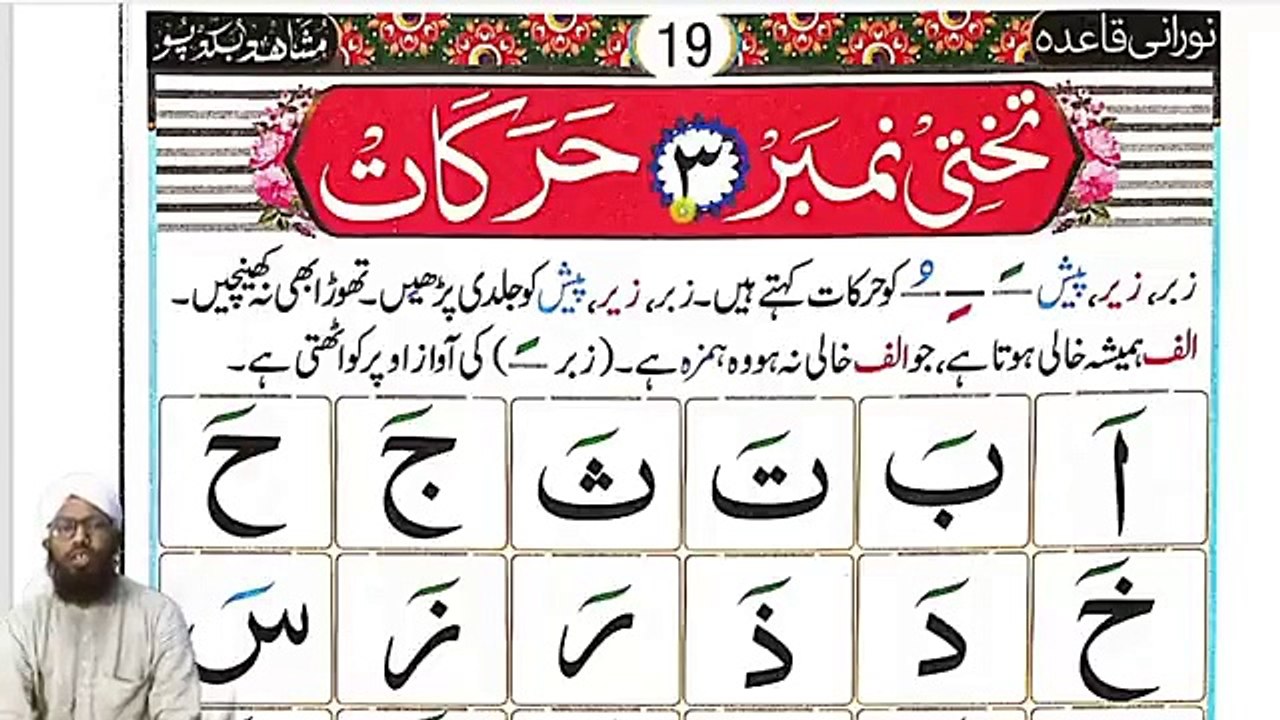 نورانی قاعدہ 19
تختی نمبر ۳ حَرَکَاتْ
زبر، زیر، پیش ـَـ ـِـ ـُـ کو حرکات کہتے ہیں۔ زبر، زیر، پیش کو جلدی پڑھیں۔ تھوڑا بھی نہ کھینچیں۔
الف ہمیشہ خالی ہوتا ہے، جو الف خالی نہ ہو وہ ہمزہ ہے۔ (زبر ـَـ) کی آواز اوپر کو اٹھتی ہے۔
اَ بَ تَ ثَ جَ حَ
خَ دَ ذَ رَ زَ سَ